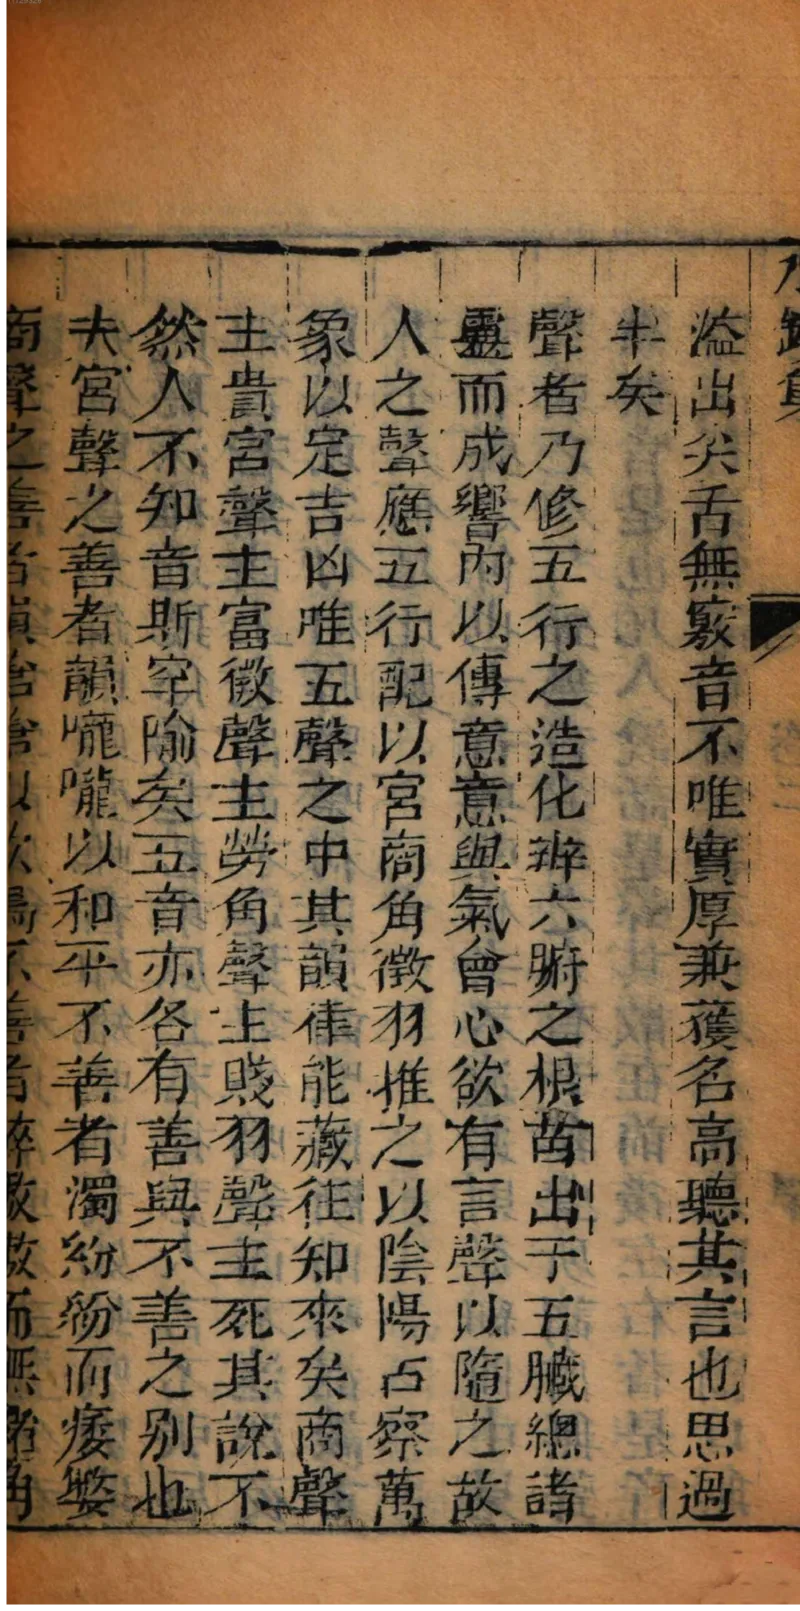 溢出矣舌無竅音不唯實厚兼獲名高聽其言也思過
半矣
聲者乃修五行之造化辨六腑之根苗出于五臟總諸
靈而成響内以傳意意與氣會心欲有言聲以隨之故
人之聲應五行配以宮商角徵羽推之以陰陽占察萬
象以定吉凶唯五聲之中其韻律能藏往知來矣商聲
主貴宮聲主富徵聲主勞角聲主賤羽聲主死其說不
然人不知音斯罕隃矣五音亦各有善與不善之别也
夫宮聲之善者韻嚨嚨以和平不善者濁紛紛而痿嫛
商聲之善者